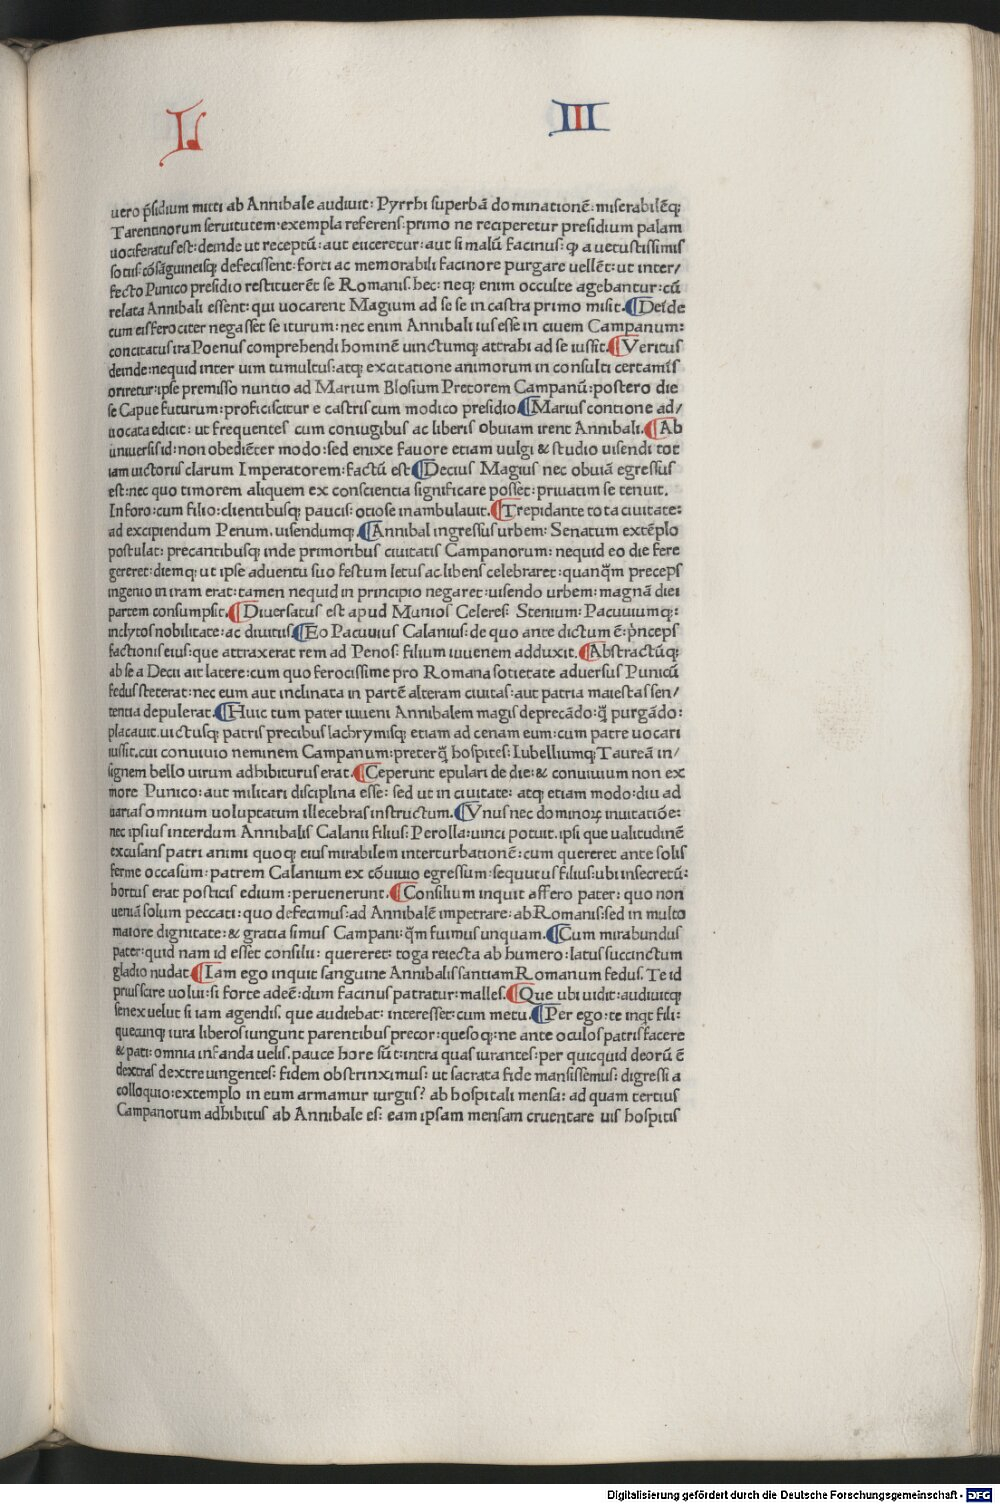 L III
uero p̄sidium mitti ab Annibale audiuit: Pyrrhi superbā dominationē: miserabilēq;
Tarentinorum seruitutem·exempla referens: primo ne reciperetur presidium palam
uociferatus est: deinde ut receptū: aut eiiceretur: aut si malū facinus: q̄ a uetustissimis
sotiis: cōsāguineisq; defecissent: forti ac memorabili facinore purgare uellēt: ut inter/
fecto Punico presidio restituerēt se Romanis. hec: neq; enim occulte agebantur: cū
relata Annibali essent: qui uocarent Magium ad se se in castra primo misit. ¶Deīde
cum eis ferociter negasset se iturum: nec enim Annibali ius esse in ciuem Campanum:
concitatus ira Poenus comprehendi hominē uinctumq; attrahi ad se iussit. ¶Veritus
deinde: nequid inter uim tumultus: atq; excitatione animorum in consulti certamīs
oriretur: ipse premisso nuntio ad Marium Blosium Pretorem Campanū: postero die
se Capue futurum: proficiscitur e castris cum modico presidio. ¶Marius contione ad/
uocata edicit: ut frequentes cum coniugibus ac liberis obuiam irent Annibali. ¶Ab
uniuersis id: non obediēter modo: sed enixe fauore etiam uulgi & studio uisendi tot
iam uictoriis clarum Imperatorem: factū est ¶Decius Magius nec obuiā egressus
est: nec quo timorem aliquem ex conscientia significare posset: priuatim se tenuit.
In foro: cum filio: clientibusq; paucis: otiose inambulauit. ¶Trepidante tota ciuitate:
ad excipiendum Penum. uisendumq; ¶Annibal ingressus urbem: Senatum extēplo
postulat: precantibusq; inde primoribus ciuitatis Campanorum: nequid eo die fere
gereret: diemq; ut ipse aduentu suo festum letus ac libens celebraret: quanq̄m preceps
ingenio in iram erat: tamen nequid in principio negaret: uisendo urbem: magnā diei
partem consumpsit. ¶Diuersatus est apud Munios Celeres: Stenium: Pacuuiumq;:
inclytos nobilitate: ac diuitiis. ¶Eo Pacuuius Calanius: de quo ante dictum ē: p̄nceps
factionis eius: que attraxerat rem ad Penos: filium iuuenem adduxit. ¶Abstractūq;
ab se a Decii ait latere: cum quo ferocissime pro Romana sotietate aduersus Punicū
fedus steterat: nec eum aut inclinata in partē alteram ciuitas: aut patria maiestas sen/
tentia depulerat. ¶Huic tum pater iuueni Annibalem magis deprecādo: q̄ purgādo:
placauit. uictusq; patris precibus lachrymisq; etiam ad cenam eum: cum patre uocari
iussit. cui conuiuio neminem Campanum: preterq̄ hospites: Iubelliumq; Taureā in/
signem bello uirum adhibiturus erat. ¶Ceperunt epulari de die: & conuiuium non ex
more Punico: aut militari disciplina esse: sed ut in ciuitate: atq; etiam modo: diu ad
uarias omnium uoluptatum illecebras instructum. ¶Vnus nec dominoꝝ inuitatiōe:
nec ipsius interdum Annibalis Calanii filius: Perolla: uinci potuit. ipsi que ualitudinē
excusans patri animi quoq; eius mirabilem interturbationē: cum quereret ante solis
ferme occasum: patrem Calanium ex cōuiuio egressum: sequutus filius: ubi in secretū:
hortus erat posticis edium: peruenerunt. ¶Consilium inquit affero pater: quo non
ueniā solum peccati: quo defecimus: ad Annibalē impetrare: ab Romanis: sed in multo
maiore dignitate: & gratia simus Campani: q̄m fuimus unquam. ¶Cum mirabundus
pater: quid nam id esset consilii: quereret: toga reiecta ab humero: latus succinctum
gladio nudat ¶Iam ego inquit sanguine Annibalis santiam Romanum fedus. Te id
prius scire uolui: si forte adeē: dum facinus patratur: malles. ¶Que ubi uidit: audiuitq;
senex uelut si iam agendis. que audiebat: interesset: cum metu. ¶Per ego: te inqt fili:
quecunq; iura liberos iungunt parentibus precor: quesoq;: ne ante oculos patris facere
& pati: omnia infanda uelis. pauce hore sūt: intra quas iurantes: per quicquid deorū ē
dextras dextre uingentes: fidem obstrinximus: ut sacrata fide mansissemus: digressi a
colloquio: extemplo in eum armamur iurgus? ab hospitali mensa: ad quam tertius
Campanorum adhibitus ab Annibale es: eam ipsam mensam cruentare uis hospitis
Digitalisierung gefördert durch die Deutsche Forschungsgemeinschaft - DFG